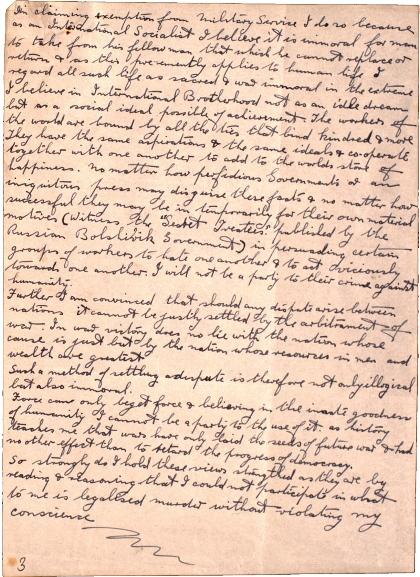 In claiming exemption from Military Service I do so because
as an International Socialist I believe it is immoral for man
to take from his fellow man that which he cannot replace or
return & as this presently applies to human life I
regard all such life as sacred & war immoral in the extreme
I believe in International Brotherhood not as an idle dream
but as a social ideal possible of achievement. The workers of
the world are bound by all the ties that bind kindred & more
They have the same aspirations & the same ideals & co-operate
together with one another to add to the worlds store of
happiness. No matter how perfidious Governments & an
iniquitous press may disguise these facts & no matter how
successful they may be in temporarily for their own material
motives (Witness the "Secret Treaties" published by the
Russian Bolshivik Government) in persuading certain
groups of workers to hate one another & to act viciously
towards one another. I will not be a party to their crime against
humanity.
Further I am convinced that should any dispute arise between
nations it cannot be justly settled by the arbitrament of
war. In war victory does no lie with the nation whose
cause is just but by the nation whose resources in men and
wealth are greatest
Such a method of settling a dispute is therefore not only illogical
but also immoral.
Force can only beget force & believing in the innate goodness
of humanity I cannot be a party to the use of it. as history
teaches me that wars have only laid the seeds of future war & had
no other effect than to retard the progress of democracy.
So strongly do I hold these views strengthed as they are by
reading & reasoning that I could not participate in what
to me is legalised murder without violating my
conscience
3